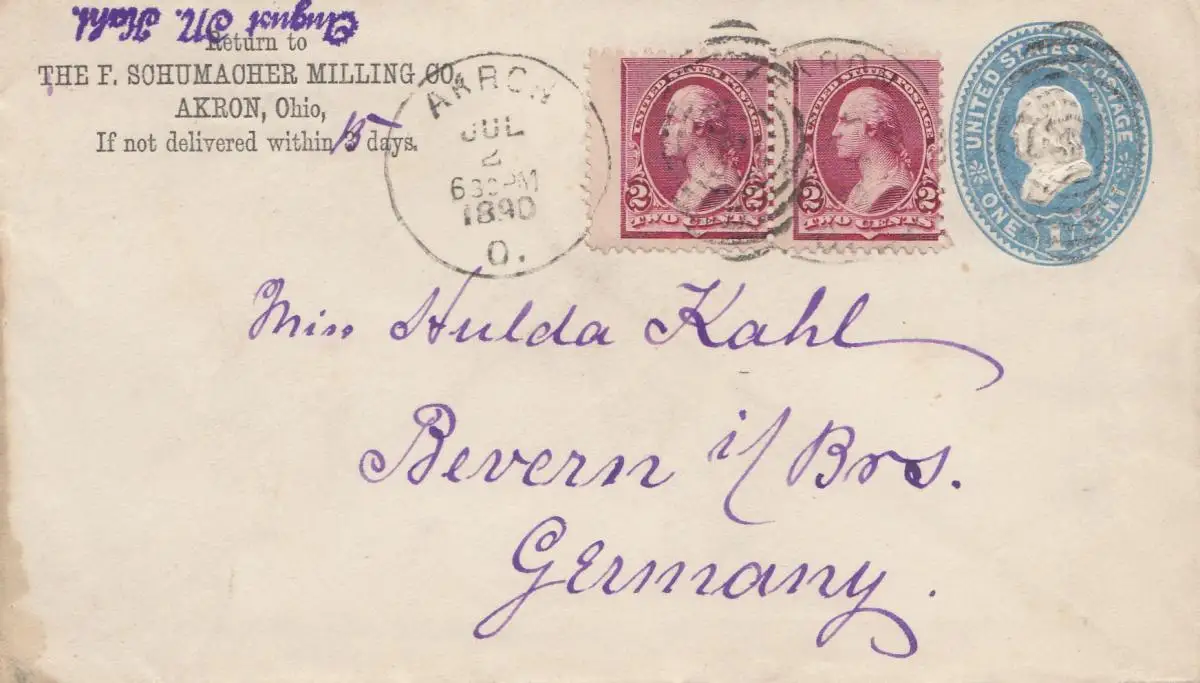 August M. Kahl.
Return to
THE F. SCHUMACHER MILLING CO.
AKRON, Ohio,
If not delivered within 3 days.
15
AKRON
JUL
2
630PM
1890
O.
UNITED STATES POSTAGE
2 2
TWO CENTS
UNITED STATES POSTAGE
2 2
TWO CENTS
UNITED STATES POSTAGE
ONE 1 CENT
Miss Hulda Kahl
Bevern i/Brs.
Germany.